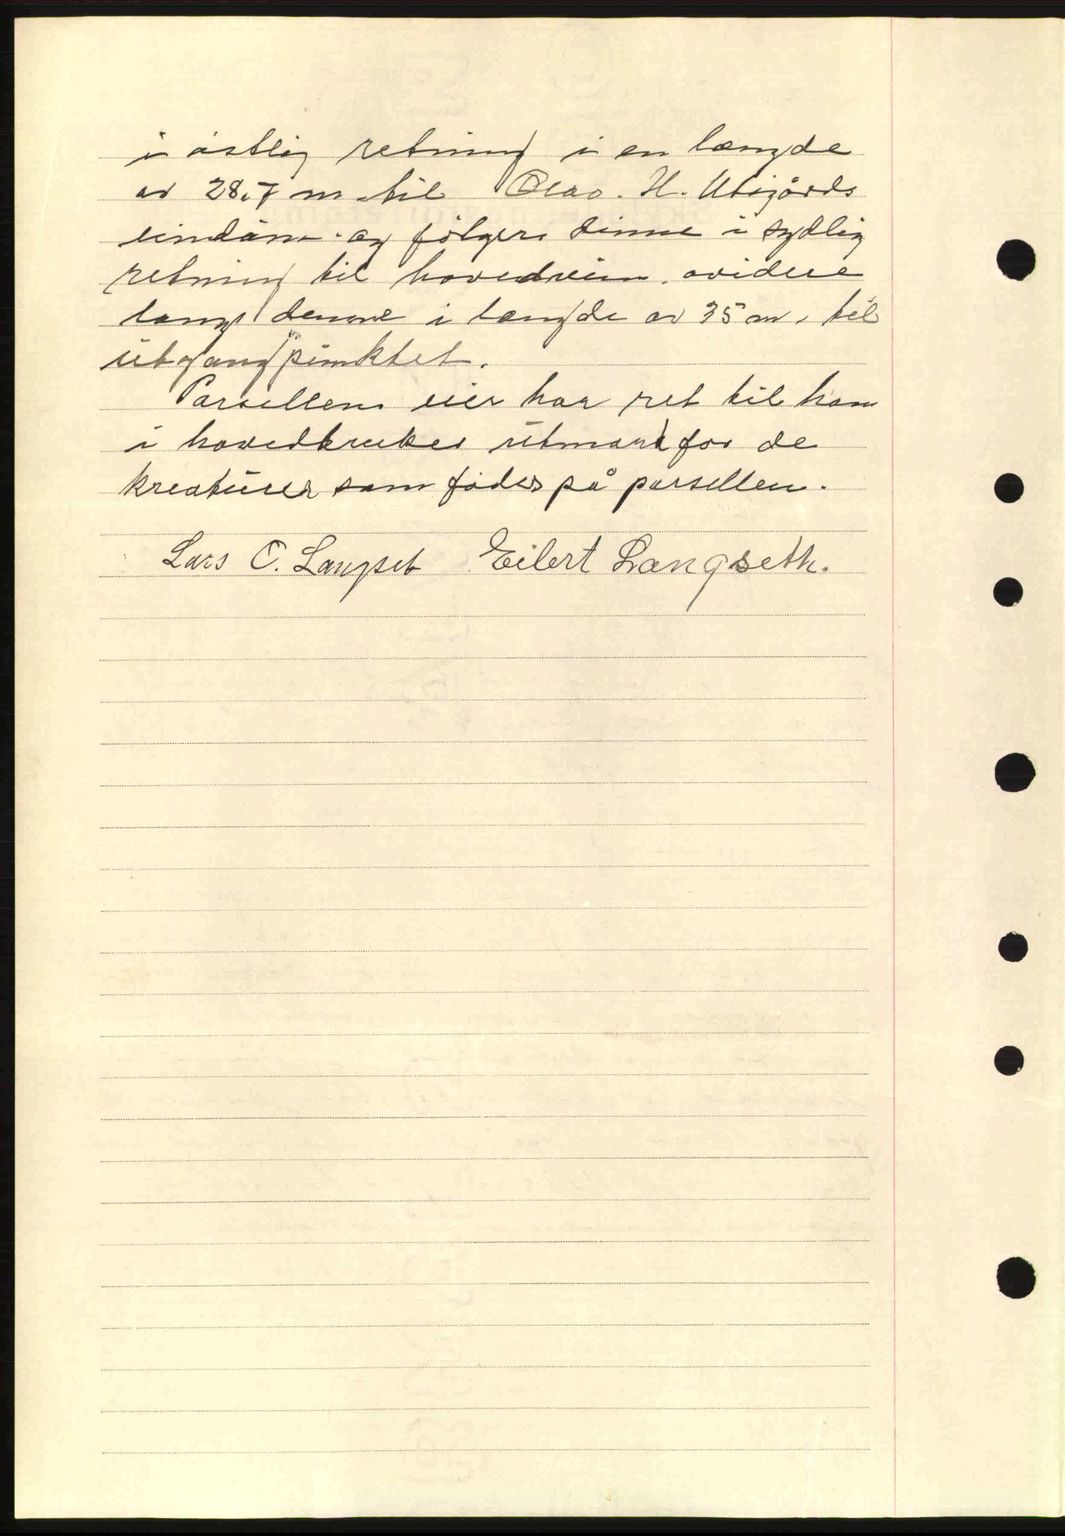 i østlig retning i en længde
av 28,7 m til Olav. H. Utigårds
eiendom og følger denne i sydlig
retning til hovedveien. ovidere
langs denne i længde av 35 m, til
utgangpunktet.
Parsellens eier har ret til havn
i hovedbrukes utmark for de
kreaturer som fødes på parsellen.
Lars O. Langset Eilert Langseth.